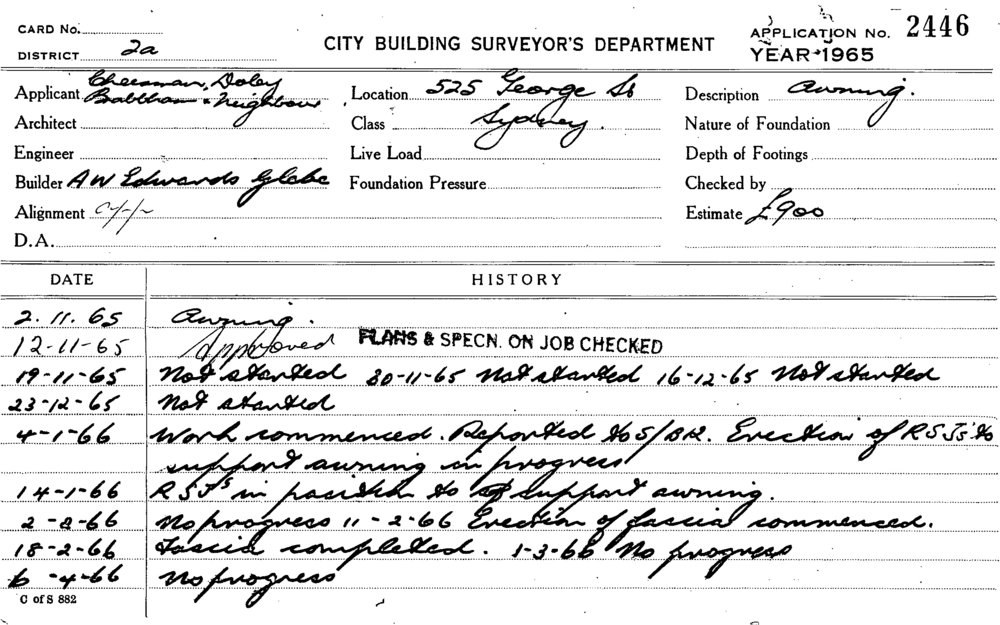 CARD No.
APPLICATION No. 2446
DISTRICT 2a
CITY BUILDING SURVEYOR'S DEPARTMENT
YEAR 1965
Applicant Cheesman, Doley
Brabham & Neighbour
Location 525 George St
Description Awning.
Architect
Class Sydney.
Nature of Foundation
Engineer
Live Load
Depth of Footings
Builder A W Edwards Glebe
Foundation Pressure
Checked by
Alignment
Estimate £900
D.A.
DATE HISTORY
2.11.65 Awning.
12-11-65 Approved PLANS & SPECN. ON JOB CHECKED
19-11-65 Not started 30-11-65 Not started 16-12-65 Not started
23-12-65 Not started
4-1-66 Work commenced. Reported to S/BR. Erection of RSJs to
support awning in progress
14-1-66 RSJs in position to support awning.
2-2-66 No progress 11-2-66 Erection of fascia commenced.
18-2-66 Fascia completed. 1-3-66 No progress
6-4-66 No progress
C of S 882